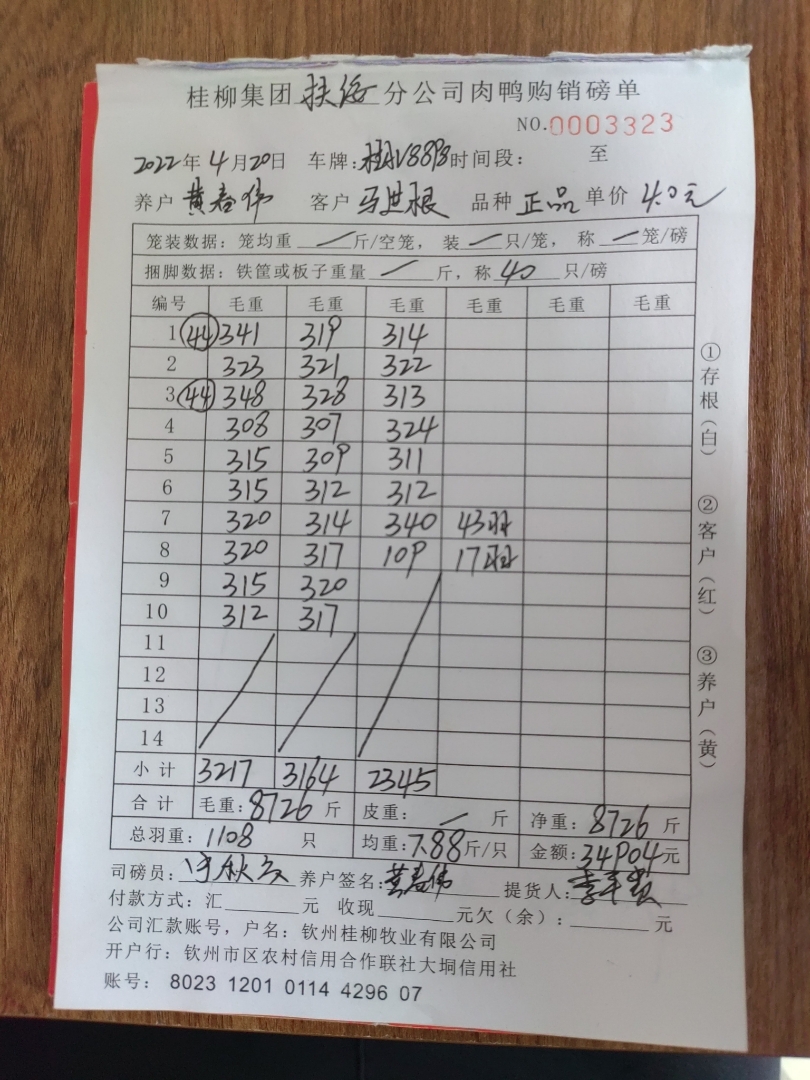 桂柳集团扶绥分公司肉鸭购销磅单
NO.0003323
2022年4月20日 车牌: 时间段: 至
养户 黄春伟 客户 马进根 品种 正品 单价 4.0元
笼装数据: 笼均重 / 斤/空笼, 装 / 只/笼, 称 / 笼/磅
捆脚数据: 铁筐或板子重量 / 斤, 称 40 只/磅
编号 毛重 毛重 毛重 毛重 毛重 毛重
1 44 341 319 314
2 323 321 322
3 44 348 328 313
4 308 307 324
5 315 309 311
6 315 312 312
7 320 314 340 43羽
8 320 317 109 17羽
9 315 320
10 312 317
11
12
13
14
小计 3217 3164 2345
合计 毛重: 8726 斤 皮重: / 斤 净重: 8726 斤
总羽重: 1108 只 均重: 7.88 斤/只 金额: 34904元
司磅员: 养户签名: 黄春伟 提货人:
付款方式: 汇 元 收现 元欠(余): 元
公司汇款账号, 户名: 钦州桂柳牧业有限公司
开户行: 钦州市区农村信用合作联社大垌信用社
账号: 8023 1201 0114 4296 07
①存根(白)
②客户(红)
③养户(黄)